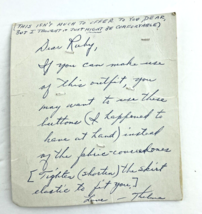 (THIS ISN'T MUCH TO OFFER TO YOU DEAR,
BUT I THOUGHT IT JUST MIGHT BE COMFORTABLE)
Dear Ruby,
If you can make use
of this outfit, you
may want to use these
buttons (I happened to
have at hand) instead
of the fabric covered ones
[Tighten (shorten) the skirt
elastic to fit you]
Love — Thelma